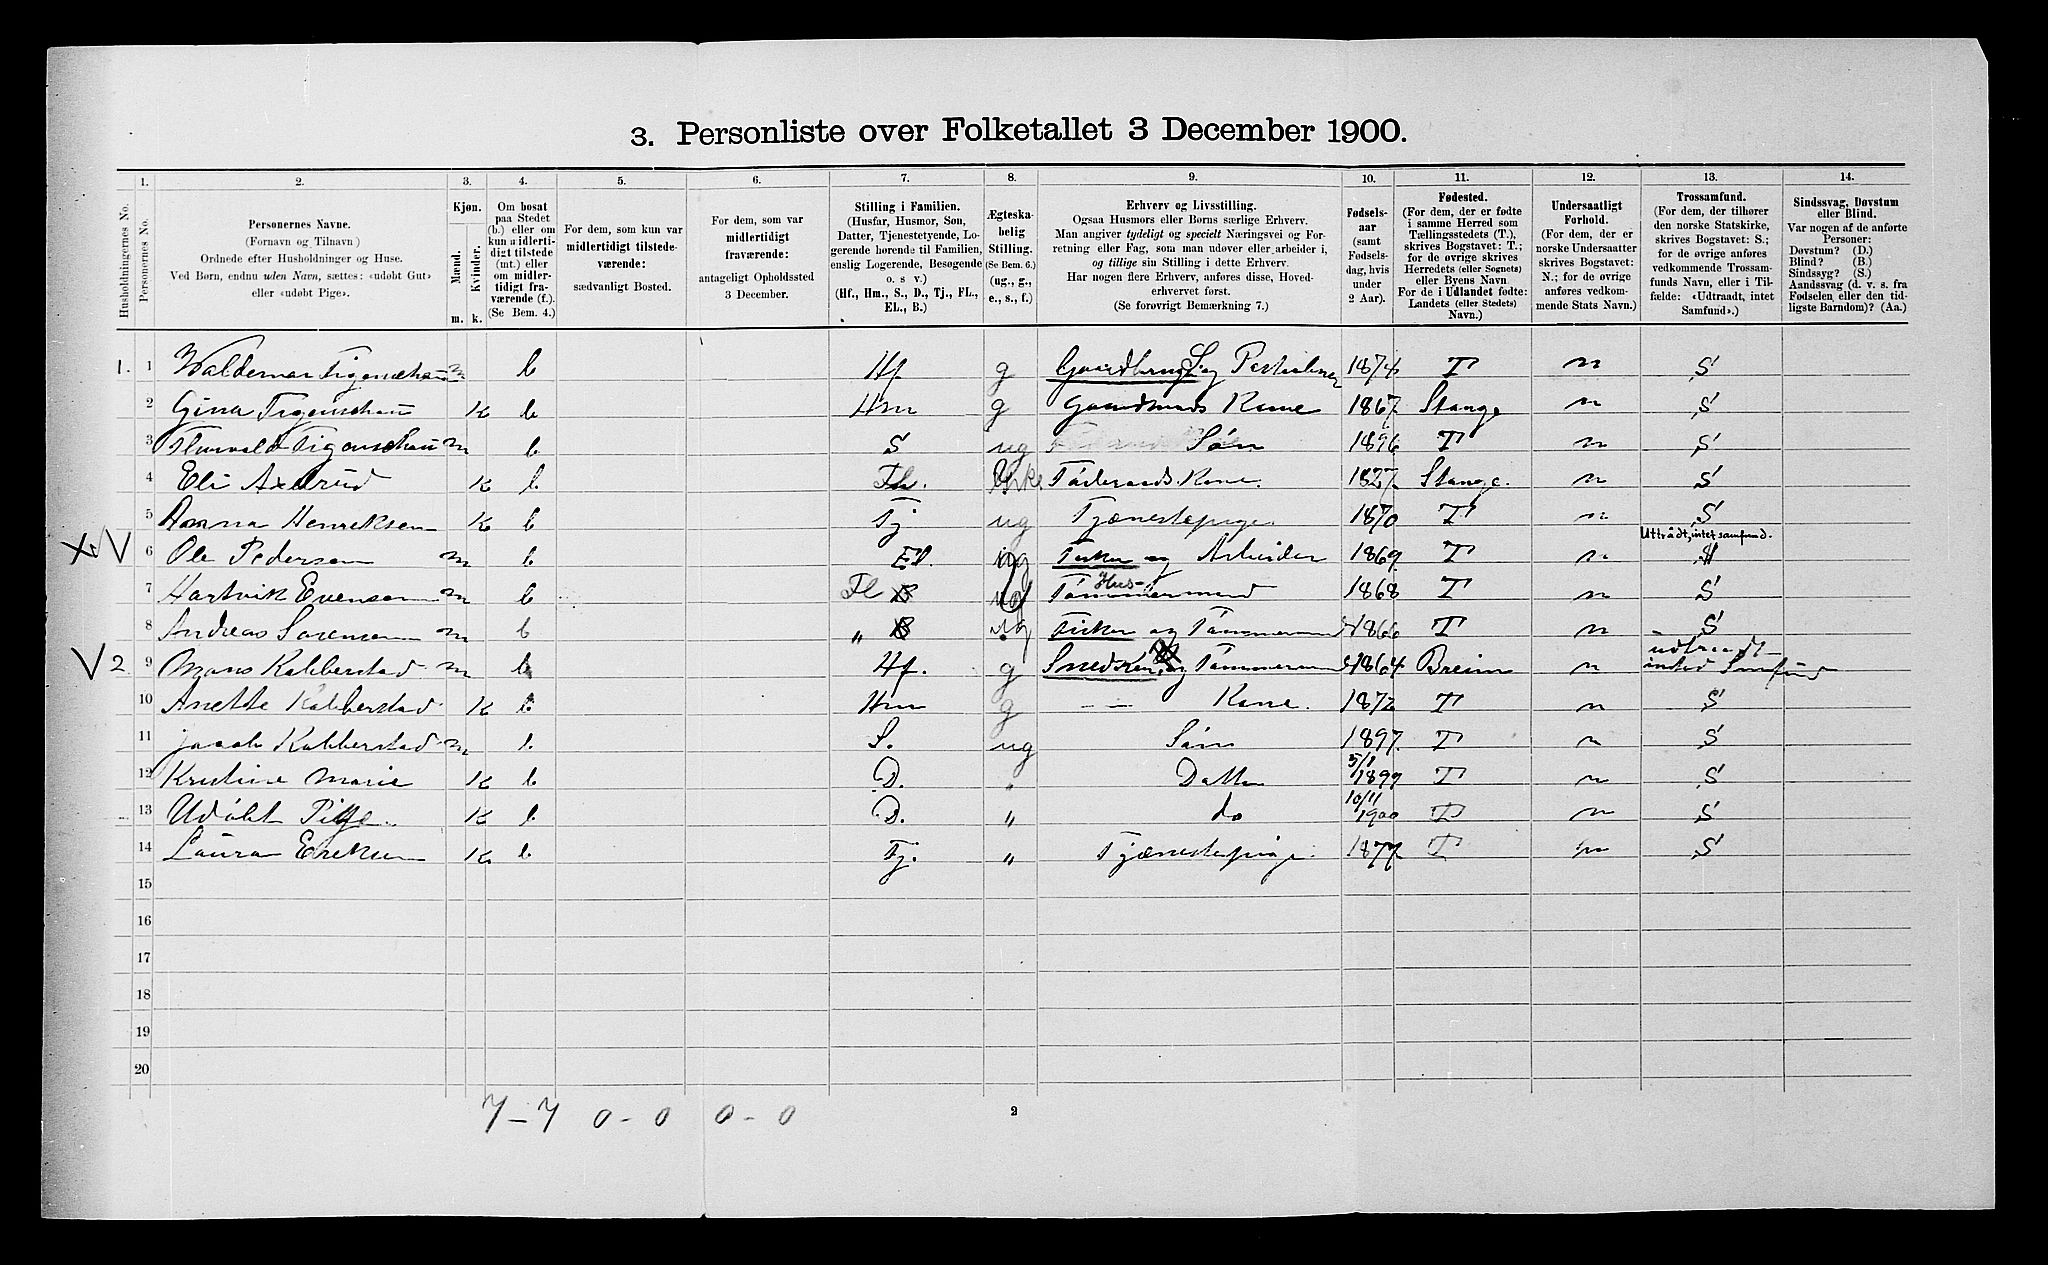 3. Personliste over Folketallet 3 December 1900.
1. 2. 3. 4. 5. 6. 7. 8. 9. 10. 11. 12. 13. 14.
Husholdningernes No.
Personernes No.
Personernes Navne.
(Fornavn og Tilnavn)
Ordnede efter Husholdninger og Huse.
Ved Børn, endnu uden Navn, sættes: «udøbt Gut»
eller «udøbt Pige».
Kjøn.
Mænd.
Kvinder.
m. k.
Om bosat
paa Stedet
(b.) eller om
kun midlerti-
digt tilstede
(mt.) eller
om midler-
tidigt fra-
værende (f.).
(Se Bem. 4.)
For dem, som kun var
midlertidigt tilstede-
værende:
sædvanligt Bosted.
For dem, som var
midlertidigt
fraværende:
antageligt Opholdssted
3 December.
Stilling i Familien.
(Husfar, Husmor, Søn,
Datter, Tjenestetyende, Lo-
gerende hørende til Familien,
enslig Logerende, Besøgende
o. s v.)
(Hf., Hm., S., D., Tj., FL.,
EL., B.)
Ægteska-
belig
Stilling.
(Se Bem. 6.)
(ug., g.,
e., s., f.)
Erhverv og Livsstilling.
Ogsaa Husmors eller Børns særlige Erhverv.
Man angiver tydeligt og specielt Næringsvei og For-
retning eller Fag, som man udøver eller arbeider i,
og tillige sin Stilling i dette Erhverv.
Har nogen flere Erhverv, anføres disse, Hoved-
erhvervet først.
(Se forøvrigt Bemærkning 7.)
Fødsels-
aar
(samt
Fødsels-
dag, hvis
under
2 Aar).
Fødested.
(For dem, der er fødte
i samme Herred som
Tællingsstedets (T.),
skrives Bogstavet: T.;
for de øvrige skrives
Herredets (eller Sognets)
eller Byens Navn
For de i Udlandet fødte:
Landets (eller Stedets)
Navn.)
Undersaatligt
Forhold.
(For dem, der er
norske Undersaatter
skrives Bogstavet:
N.; for de øvrige
anføres vedkom-
mende Stats Navn.)
Trossamfund.
(For dem, der tilhører
den norske Statskirke,
skrives Bogstavet: S.;
for de øvrige anføres
vedkommende Trossam-
funds Navn, eller i Til-
fælde: «Udtraadt, intet
Samfund».)
Sindssvag, Døvstum
eller Blind.
Var nogen af de anførte
Personer:
Døvstum? (D.)
Blind? (B.)
Sindssyg? (S.)
Aandssvag (d. v. s. fra
Fødselen eller den tid-
ligste Barndom)? (Aa.)
1. 1 Waldemar Tigenschau m b Hf g Gaardbrug S. og 1874 T n S
2 Gina Tigenschau K b Hm g Kone 1867 Stange n S
3 Thorvald Tigenschau m b S ug Søn 1896 T n S
4 Eli Axelrud K b Fl. Kone. 1827 Stange. n S
5 Anna Henriksen K b Tj ug Tjenestepige 1870 T n S
Uttrådt, intet samfund.
X V 6 Ole Pedersen m b El. ug Fisker og Arbeider 1869 T n
7 Hartvik Evensen m b Fl ug Hus- Tømmermand 1868 T n S
8 Andreas Sorensen m b „ ug Fisker og Tømmermand 1866 T n S
udtraadt
V 2. 9 Mons Kobberstad m b Hf. g Snedker og Tømmerman 1864 Breim n intet Samfund
10 Anette Kobberstad K b Hm g — — Kone. 1872 T n S
11 Jacob Kobberstad m b S. ug Søn 1897 T n S
12 Kristine Marie K b D. „ Datter 5/1 1899 T n S
13 Udöbt Pige. K b D. „ do 10/11 1900 T n S
14 Laura Eriksen K b Tj. „ Tjænestepige. 1877 T n S
15
16
17
18
19
20
7 - 7 0 - 0 0 - 0
2